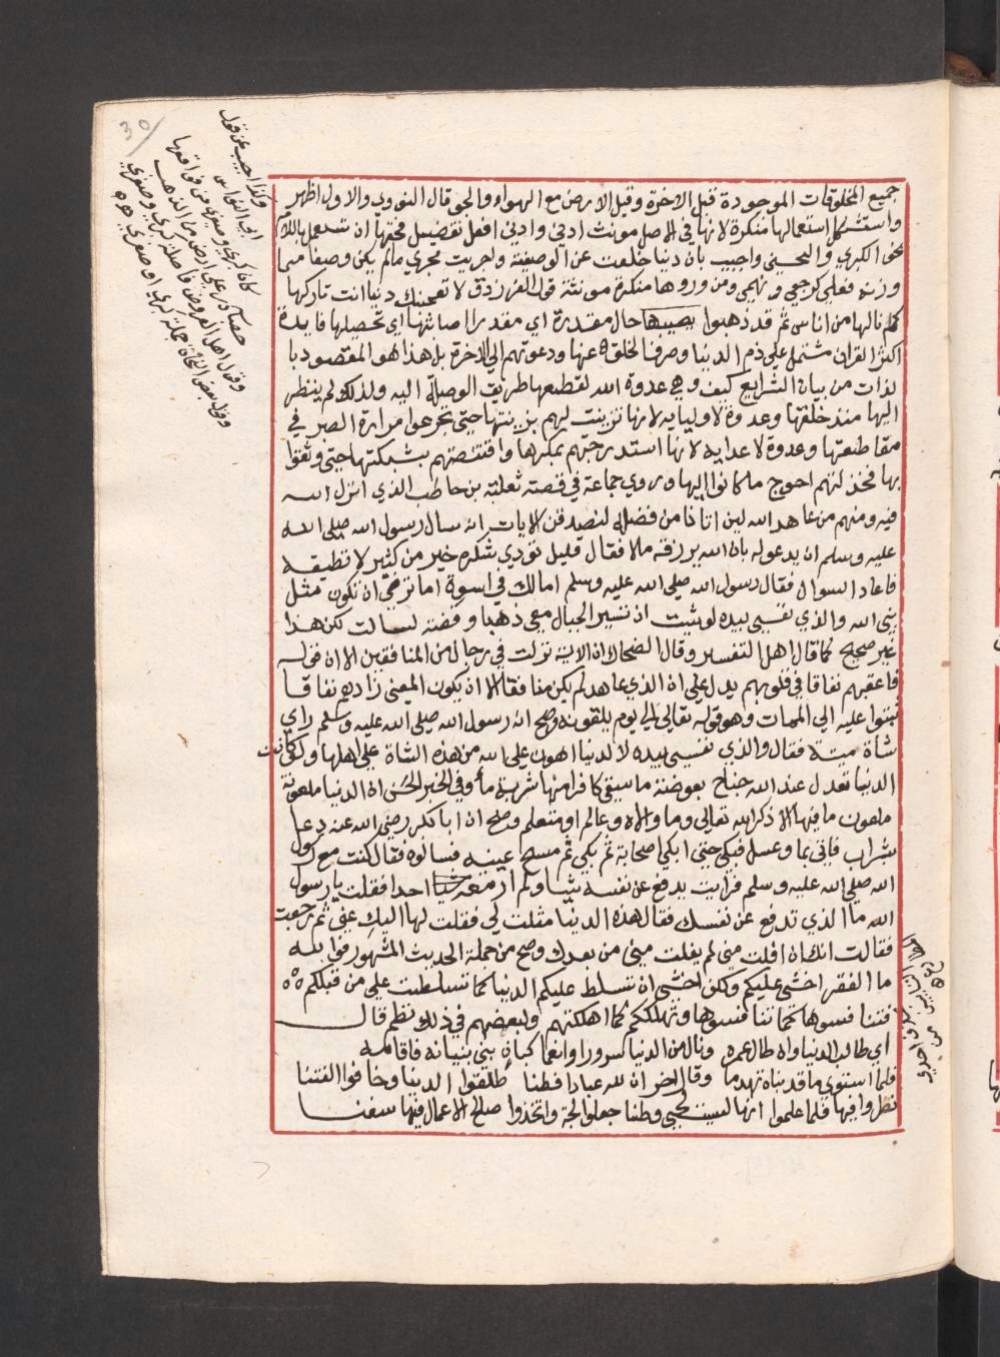 جميع المخلوقات الموجودة قبل الاخرة وقيل الارض مع الهواء والجو قال النووي والاول اظهر
واستشكل استعمالها منكرة لانها في الاصل مونث ادني وادني افعل تفضيل فحقها ان تستعمل باللام
نحو الكبري والحسني واجيب بان دنيا خلعت عن الوصفية واجريت مجري مالم يكن وصفا مما
وزنه فعلي كرجعي وبهمي ومن ورودها منكرة مونثة قول الفرزدق لا تعجبنك دنيا انت تاركها
كم نالها من اناس ثم قد ذهبوا يصيبها حال مقدرة اي مقدرا اصابتها اي تحصيلها فايدة
اكثر القران مشتمل علي ذم الدنيا وصرف الخلق عنها ودعوتهم الي الاخرة بل هذا هو المقصود با
لذات من بيان الشرايع كيف وهي عدوة الله لقطعها طريق الوصلة اليه ولذلك لم ينظر
اليها منذ خلقها وعدوة لاوليايه لانها تزينت لهم بزينتها حتي تجرعوا مرارة الصبر في
مقاطعتها وعدوة لاعدايه لانها استدرجتهم بمكرها واقتنصتهم بشبكتها حتي وثقوا
بها فخذلتهم احوج ما كانوا اليها وروي جماعة في قصة ثعلبة بن حاطب الذي انزل الله
فيه ومنهم من عاهد الله لين اتانا من فضله لنصدقن الايات انه سال رسول الله صلي الله
عليه وسلم ان يدعو له بان الله يرزقه مالا فقال قليل تودي شكره خير من كثير لا تطيقه
فاعاد السوال فقال رسول الله صلي الله عليه وسلم اما لك في اسوة اما ترضي ان تكون مثل
نبي الله والذي نفسي بيده لو شيت ان تسير الجبال معي ذهبا وفضة لسالت لكن هذا
غير صحيح كما قال اهل التفسير وقال الضحاك ان الاية نزلت في رجال من المنافقين الا ان قوله
فاعقبهم نفاقا في قلوبهم يدل علي ان الذي عاهد لم يكن منافقا الا ان يكون المعني زادهم نفاقا
ثبتوا عليه الي الممات وهو قوله تعالي الي يوم يلقونه وصح انه رسول الله صلي الله عليه وسلم راي
شاة ميتة فقال والذي نفسي بيده لا لدنيا اهون علي الله من هذه الشاة علي اهلها ولو كانت
الدنيا تعدل عند الله جناح بعوضة ما سقي كافرا منها شربة ماء وفي الخبر الحسن ان الدنيا ملعونة
ملعون ما فيها الا ذكر الله تعالي وما والاه وعالم او متعلم وصح ان ابا بكر رضي الله عنه دعا
بشراب فاتي بما وعسل فبكي حتي ابكي اصحابه ثم بكي ثم مسح عينيه فسالوه فقال كنت مع رسول
الله صلي الله عليه وسلم فرايت يدفع عن نفسه شيا ولم ار معه احدا فقلت يا رسول
الله ما الذي تدفع عن نفسك فقال هذه الدنيا مثلت لي فقلت لها اليك عني ثم رجعت
فقالت انك ان افلت مني لم يفلت مني من بعدك وصح من جملة الحديث المشهور فوالله
ما الفقر اخشي عليكم ولكن اخشي ان تبسط عليكم الدنيا كما بسطت علي من قبلكم
فتنافسوها كما تنافسوها وتهلككم كما اهلكتهم ولبعضهم في ذلك نظم قال
اي طالب الدنيا وان طال عمره ونال من الدنيا سرورا وانعما كبان بني بنيانه فاقامه
فلما استوي ما قد بناه تهدما وقال اخر ان لله عبادا فطنا طلقوا الدنيا وخافوا الفتنا
نظروا فيها فلما علموا انها ليست لحي وطنا جعلوا لجة واتخذوا صالح الاعمال فيها سفنا
وكذا اجيب عن قول
ابي النواس
كان كبري وصغري من فواقعها
حصباء در علي ارض من الذهب
وقول اهل العروض فاصلة كبري وصغري
وقول بعض النحاة جملة كبري او صغري
30